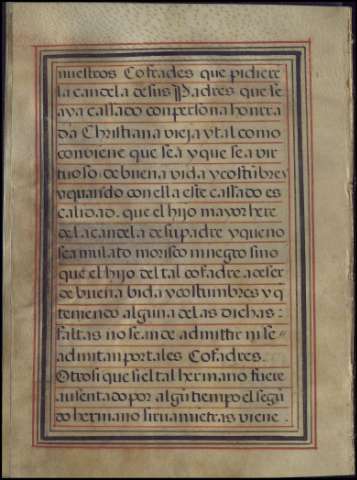 nuestros Cofrades que pidiere
la candela de sus Padres que se
aya cassado con persona honrra
da Christiana vieja y tal como
conviene que sea y que sea vir
tuoso: de buena vida y costũbres
y quando con ella este cassado es
calidad. que el hijo mayor here
de la candela de su padre y que no
sea mulato morisco ni negro sino
que el hijo del tal cofadre a de ser
de buena bida y costumbres y q̃
teniendo alguna de las dichas:
faltas no se an de admittir ni se
admitan por tales Cofadres.
Otrosi que si el tal hermano fuere
ausentado por algũ tiempo el segũ
do hermano sirva mietras viene.